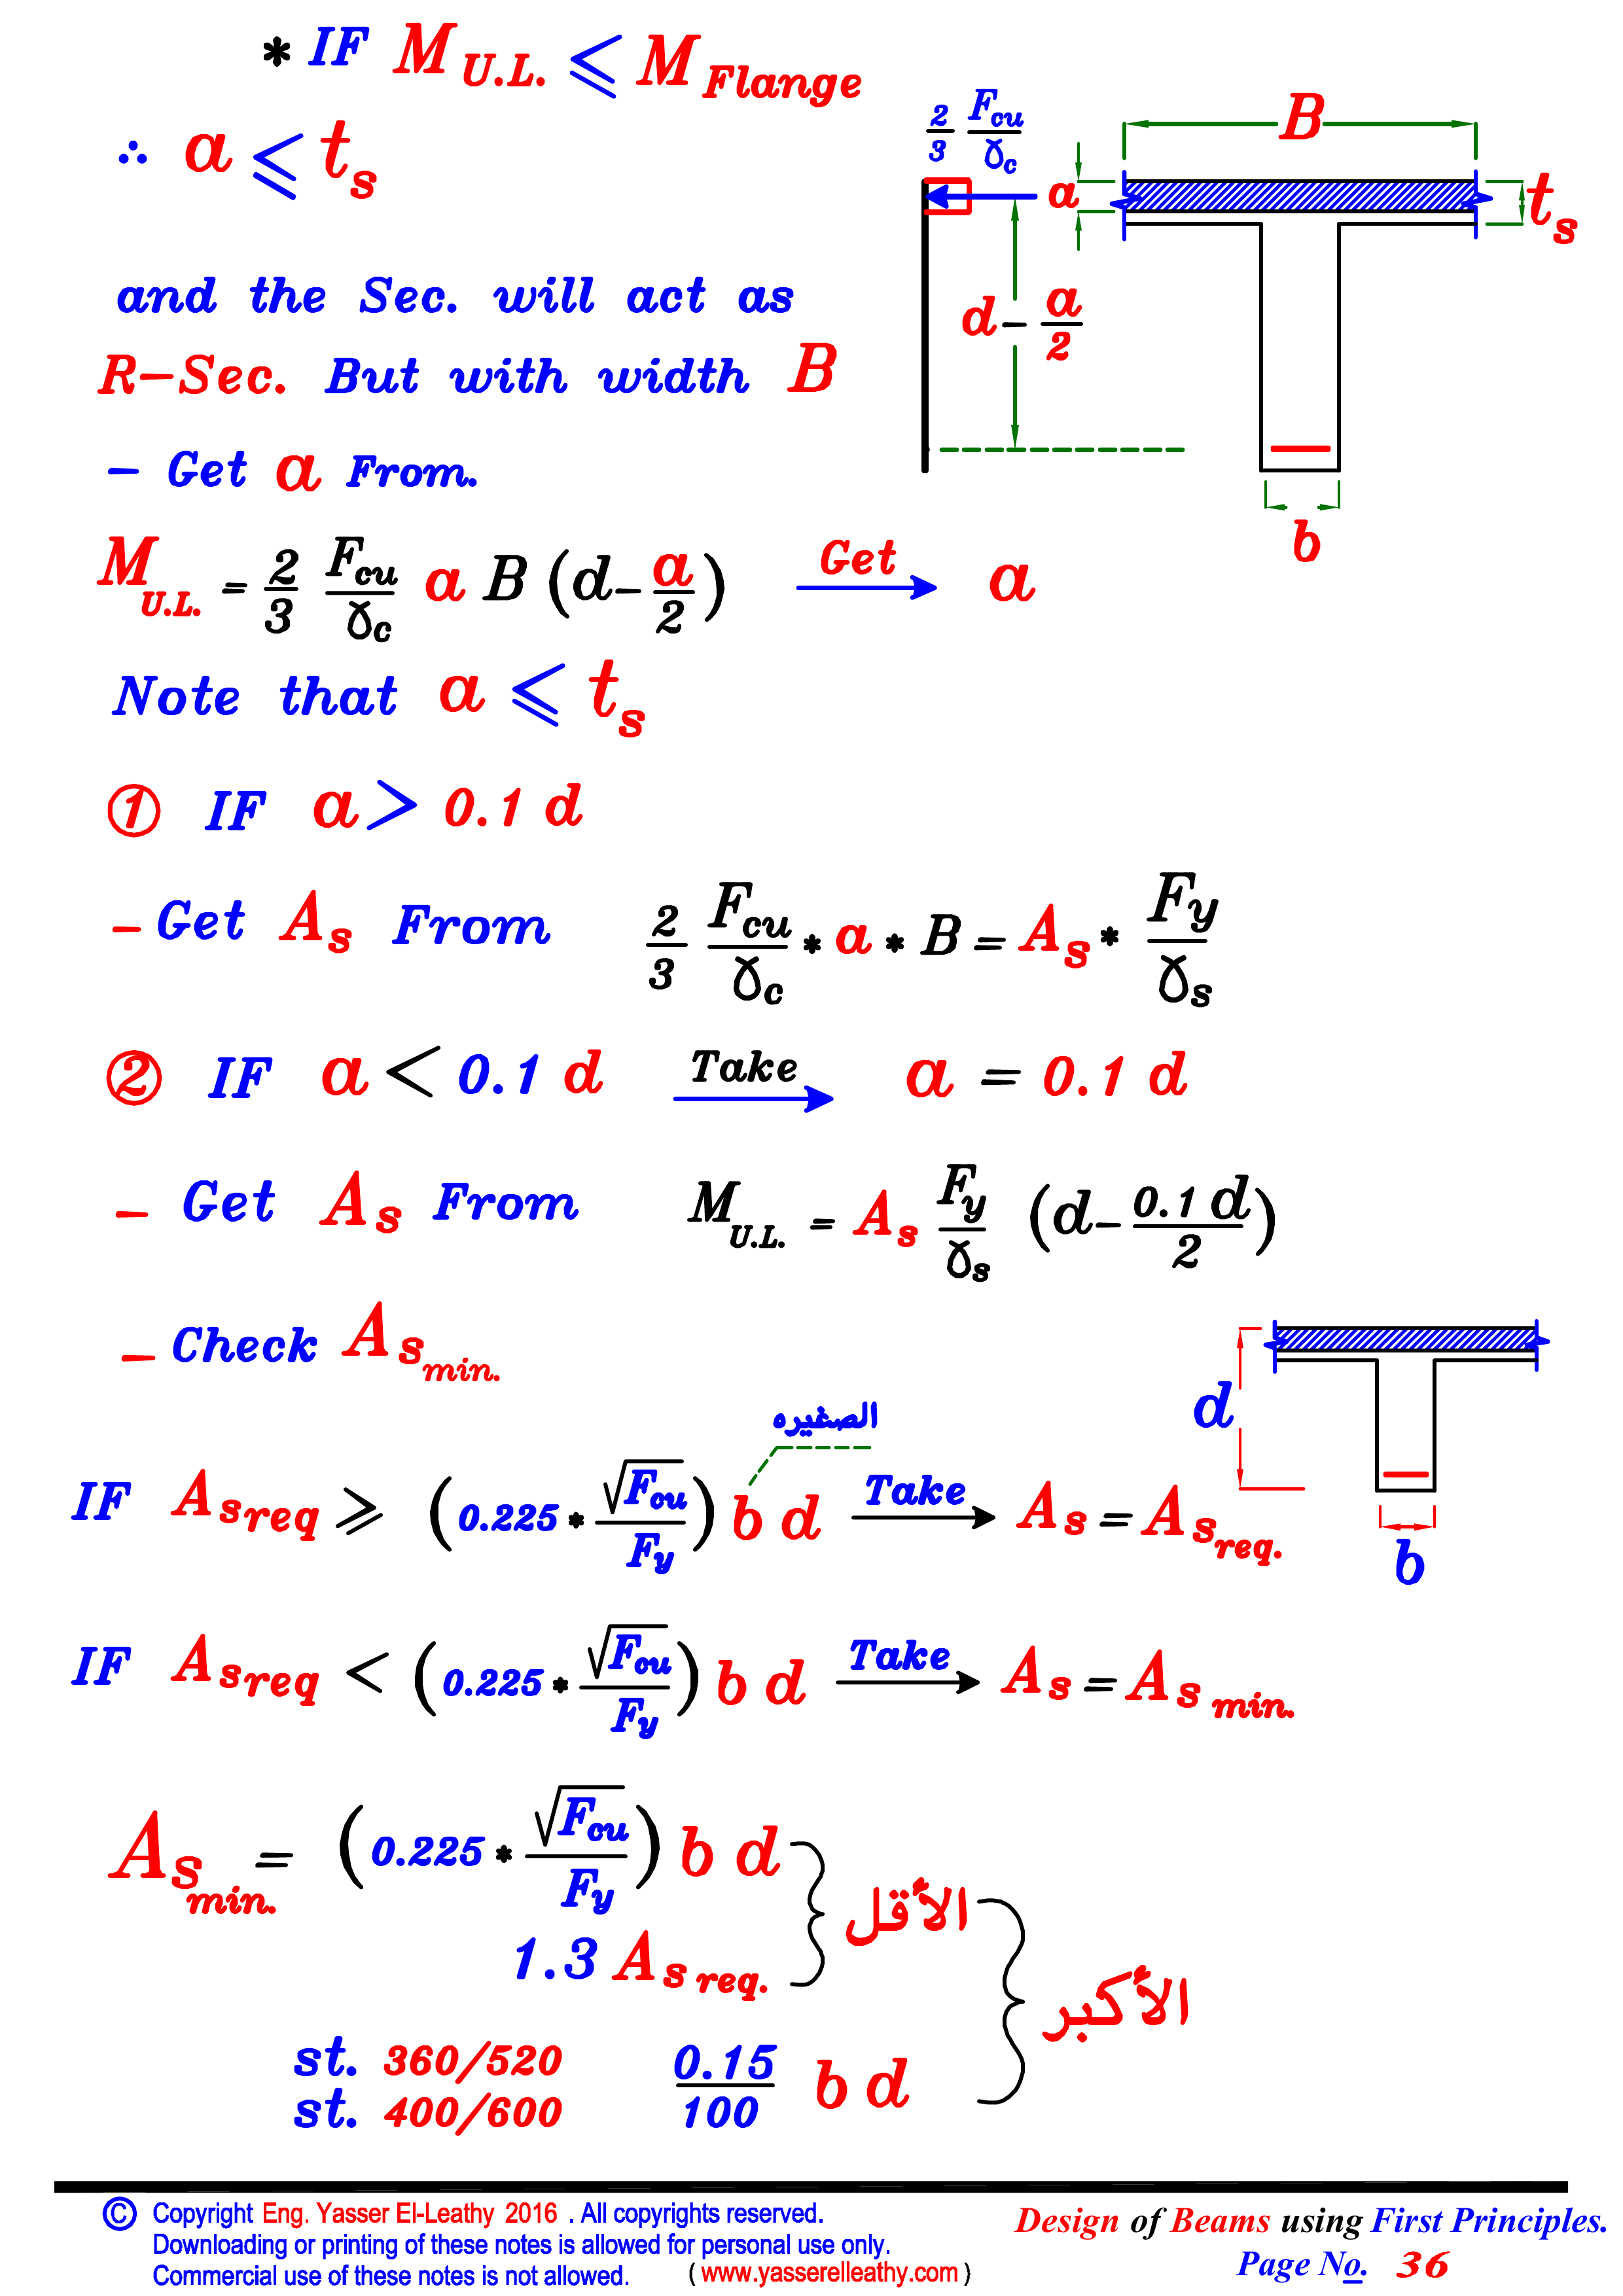 * IF M U.L. ⩽ M Flange
∴ a ⩽ t s
2/3 Fcu/γc
B
a
t s
d - a/2
b
and the Sec. will act as
R-Sec. But with width B
- Get a From.
M U.L. = 2/3 Fcu/γc a B (d - a/2) Get a
Note that a ⩽ t s
① IF a > 0.1 d
- Get As From 2/3 Fcu/γc * a * B = As * Fy/γs
② IF a < 0.1 d Take a = 0.1 d
- Get As From M U.L. = As Fy/γs (d - 0.1 d/2)
- Check As min.
d
b
الصغيره
IF As req ⩾ (0.225 * √Fcu/Fy) b d Take As = As req.
IF As req < (0.225 * √Fcu/Fy) b d Take As = As min.
As min. = (0.225 * √Fcu/Fy) b d
1.3 As req.
الأقل
الأكبر
st. 360/520
st. 400/600
0.15/100 b d
© Copyright Eng. Yasser El-Leathy 2016 . All copyrights reserved.
Downloading or printing of these notes is allowed for personal use only.
Commercial use of these notes is not allowed. ( www.yasserelleathy.com )
Design of Beams using First Principles.
Page No. 36